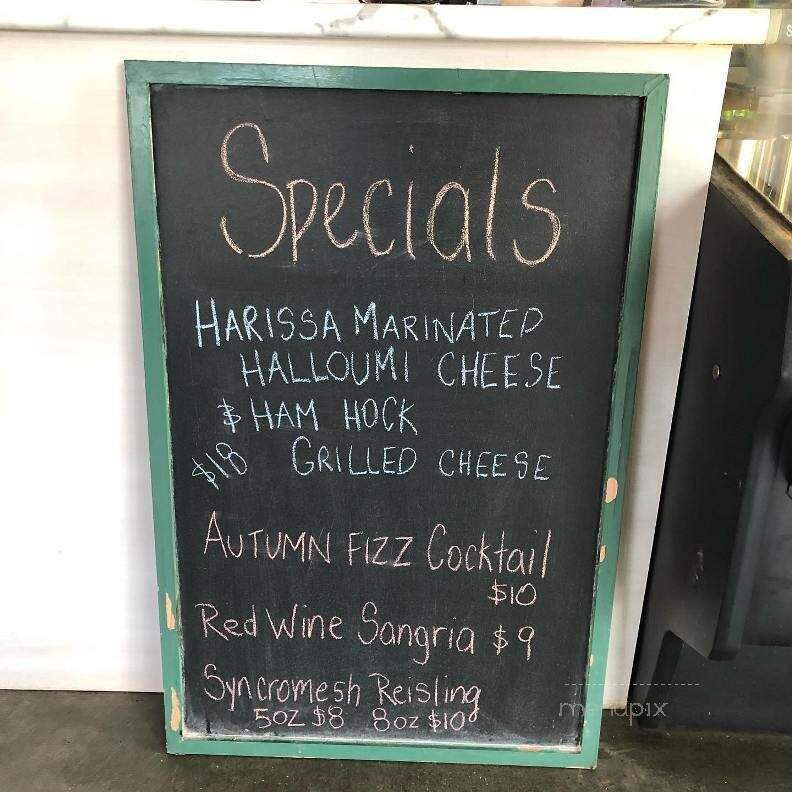 Specials
HARISSA MARINATED
HALLOUMI CHEESE
& HAM HOCK
$18 GRILLED CHEESE
AUTUMN FIZZ Cocktail
$10
Red Wine Sangria $9
Syncromesh Reisling
5oz $8 8oz $10
menupix